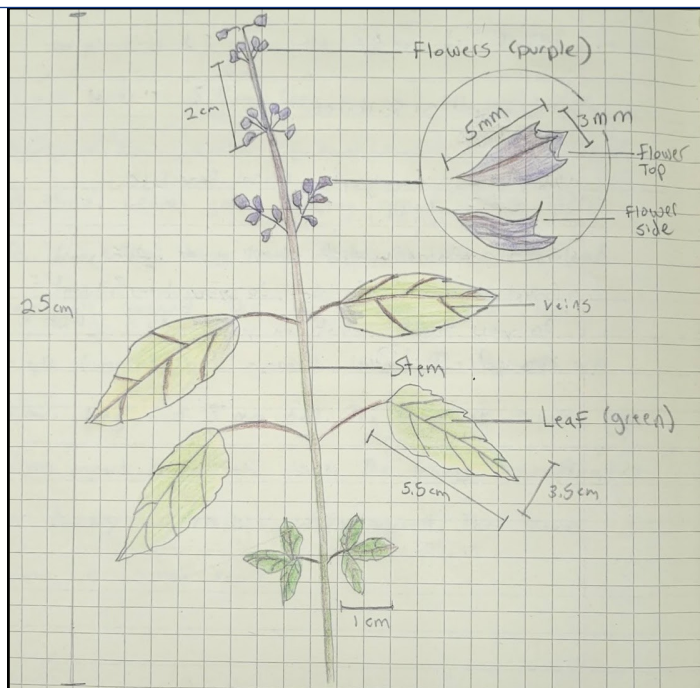 Flowers (purple)
2cm
5mm
3mm
Flower
Top
Flower
side
25cm
veins
Stem
Leaf (green)
5.5cm
3.5cm
1cm